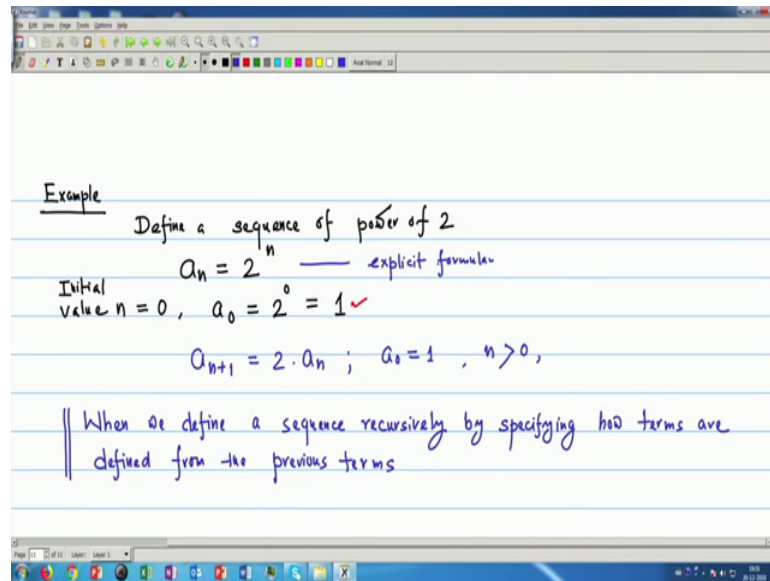 Journal
File Edit View Page Tools Options Help
Arial Normal 12
Example
Define a sequence of power of 2
aₙ = 2ⁿ —— explicit formular
Initial
value n = 0, a₀ = 2⁰ = 1 ✓
aₙ₊₁ = 2 · aₙ ; a₀ = 1 , n > 0,
When we define a sequence recursively by specifying how terms are
defined from the previous terms
Page 11 of 11 Layer: Layer 1